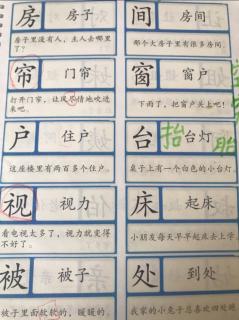 房 房子
房子里没有人，主人去哪里了？
间 房间
那个大房子里有很多房间。
帘 门帘
打开门帘，让风尽情地吹进来吧。
窗 窗户
下雨了，把窗户关上吧！
户 住户
这座楼里有两百多个住户。
台 台灯
抬 胎
桌子上有一个白色的小台灯。
视 视力
看电视太多了，视力就变得不好了。
床 起床
小朋友每天早早起床去上学。
被 被子
被子里面软软的，暖暖的。
处 到处
我家的小兔子总喜欢四处蹦